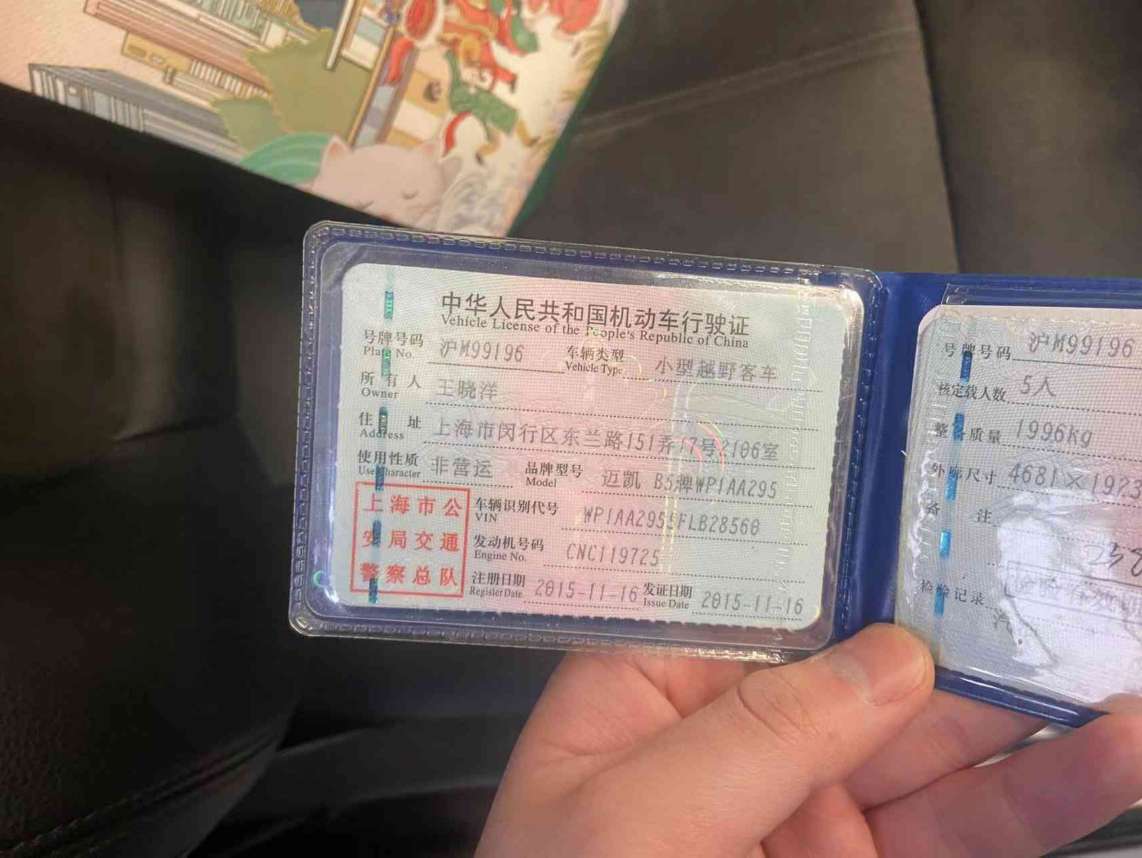 中华人民共和国机动车行驶证
Vehicle License of the People's Republic of China
号牌号码 沪M99196 车辆类型 小型越野客车
Plate No. Vehicle Type
所有人 王晓洋
Owner
住址 上海市闵行区东兰路151弄17号2106室
Address
使用性质 非营运 品牌型号 迈凯 B5牌WP1AA295
Use Character Model
上海市公
安局交通
警察总队
车辆识别代号 WP1AA2955FLB28560
VIN
发动机号码 CNC119725
Engine No.
注册日期 2015-11-16 发证日期 2015-11-16
Register Date Issue Date
号牌号码 沪M99196
核定载人数 5人
整备质量 1996kg
外廓尺寸 4681×1923
备注
检验记录